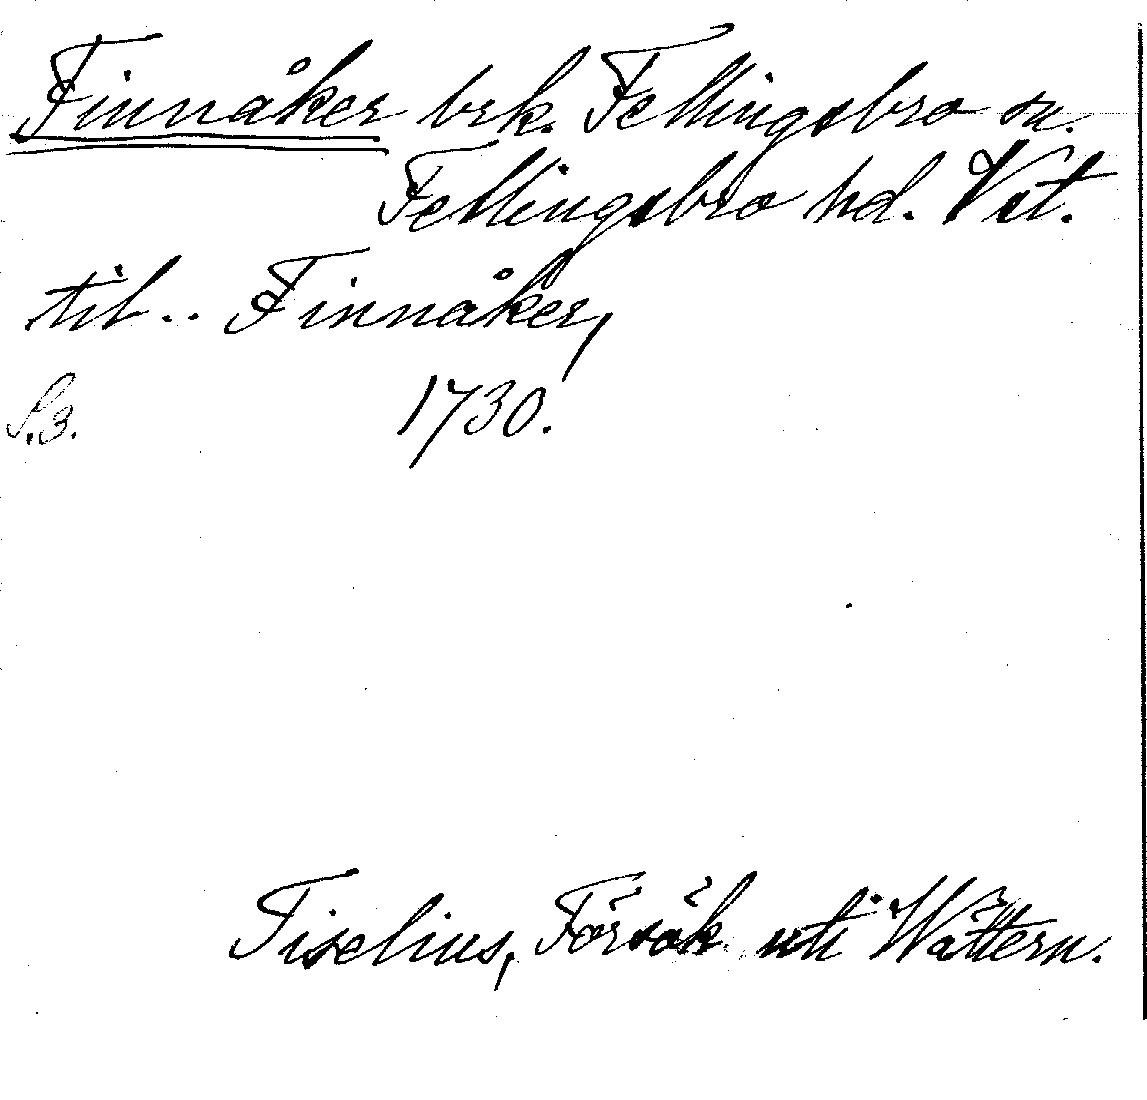 Finnåker brk. Fellingsbro sn.
Fellingsbro hd. Vst.
til .. Finnåker,
S. 3. 1730.
Tiselius, Försök uti Wättern.